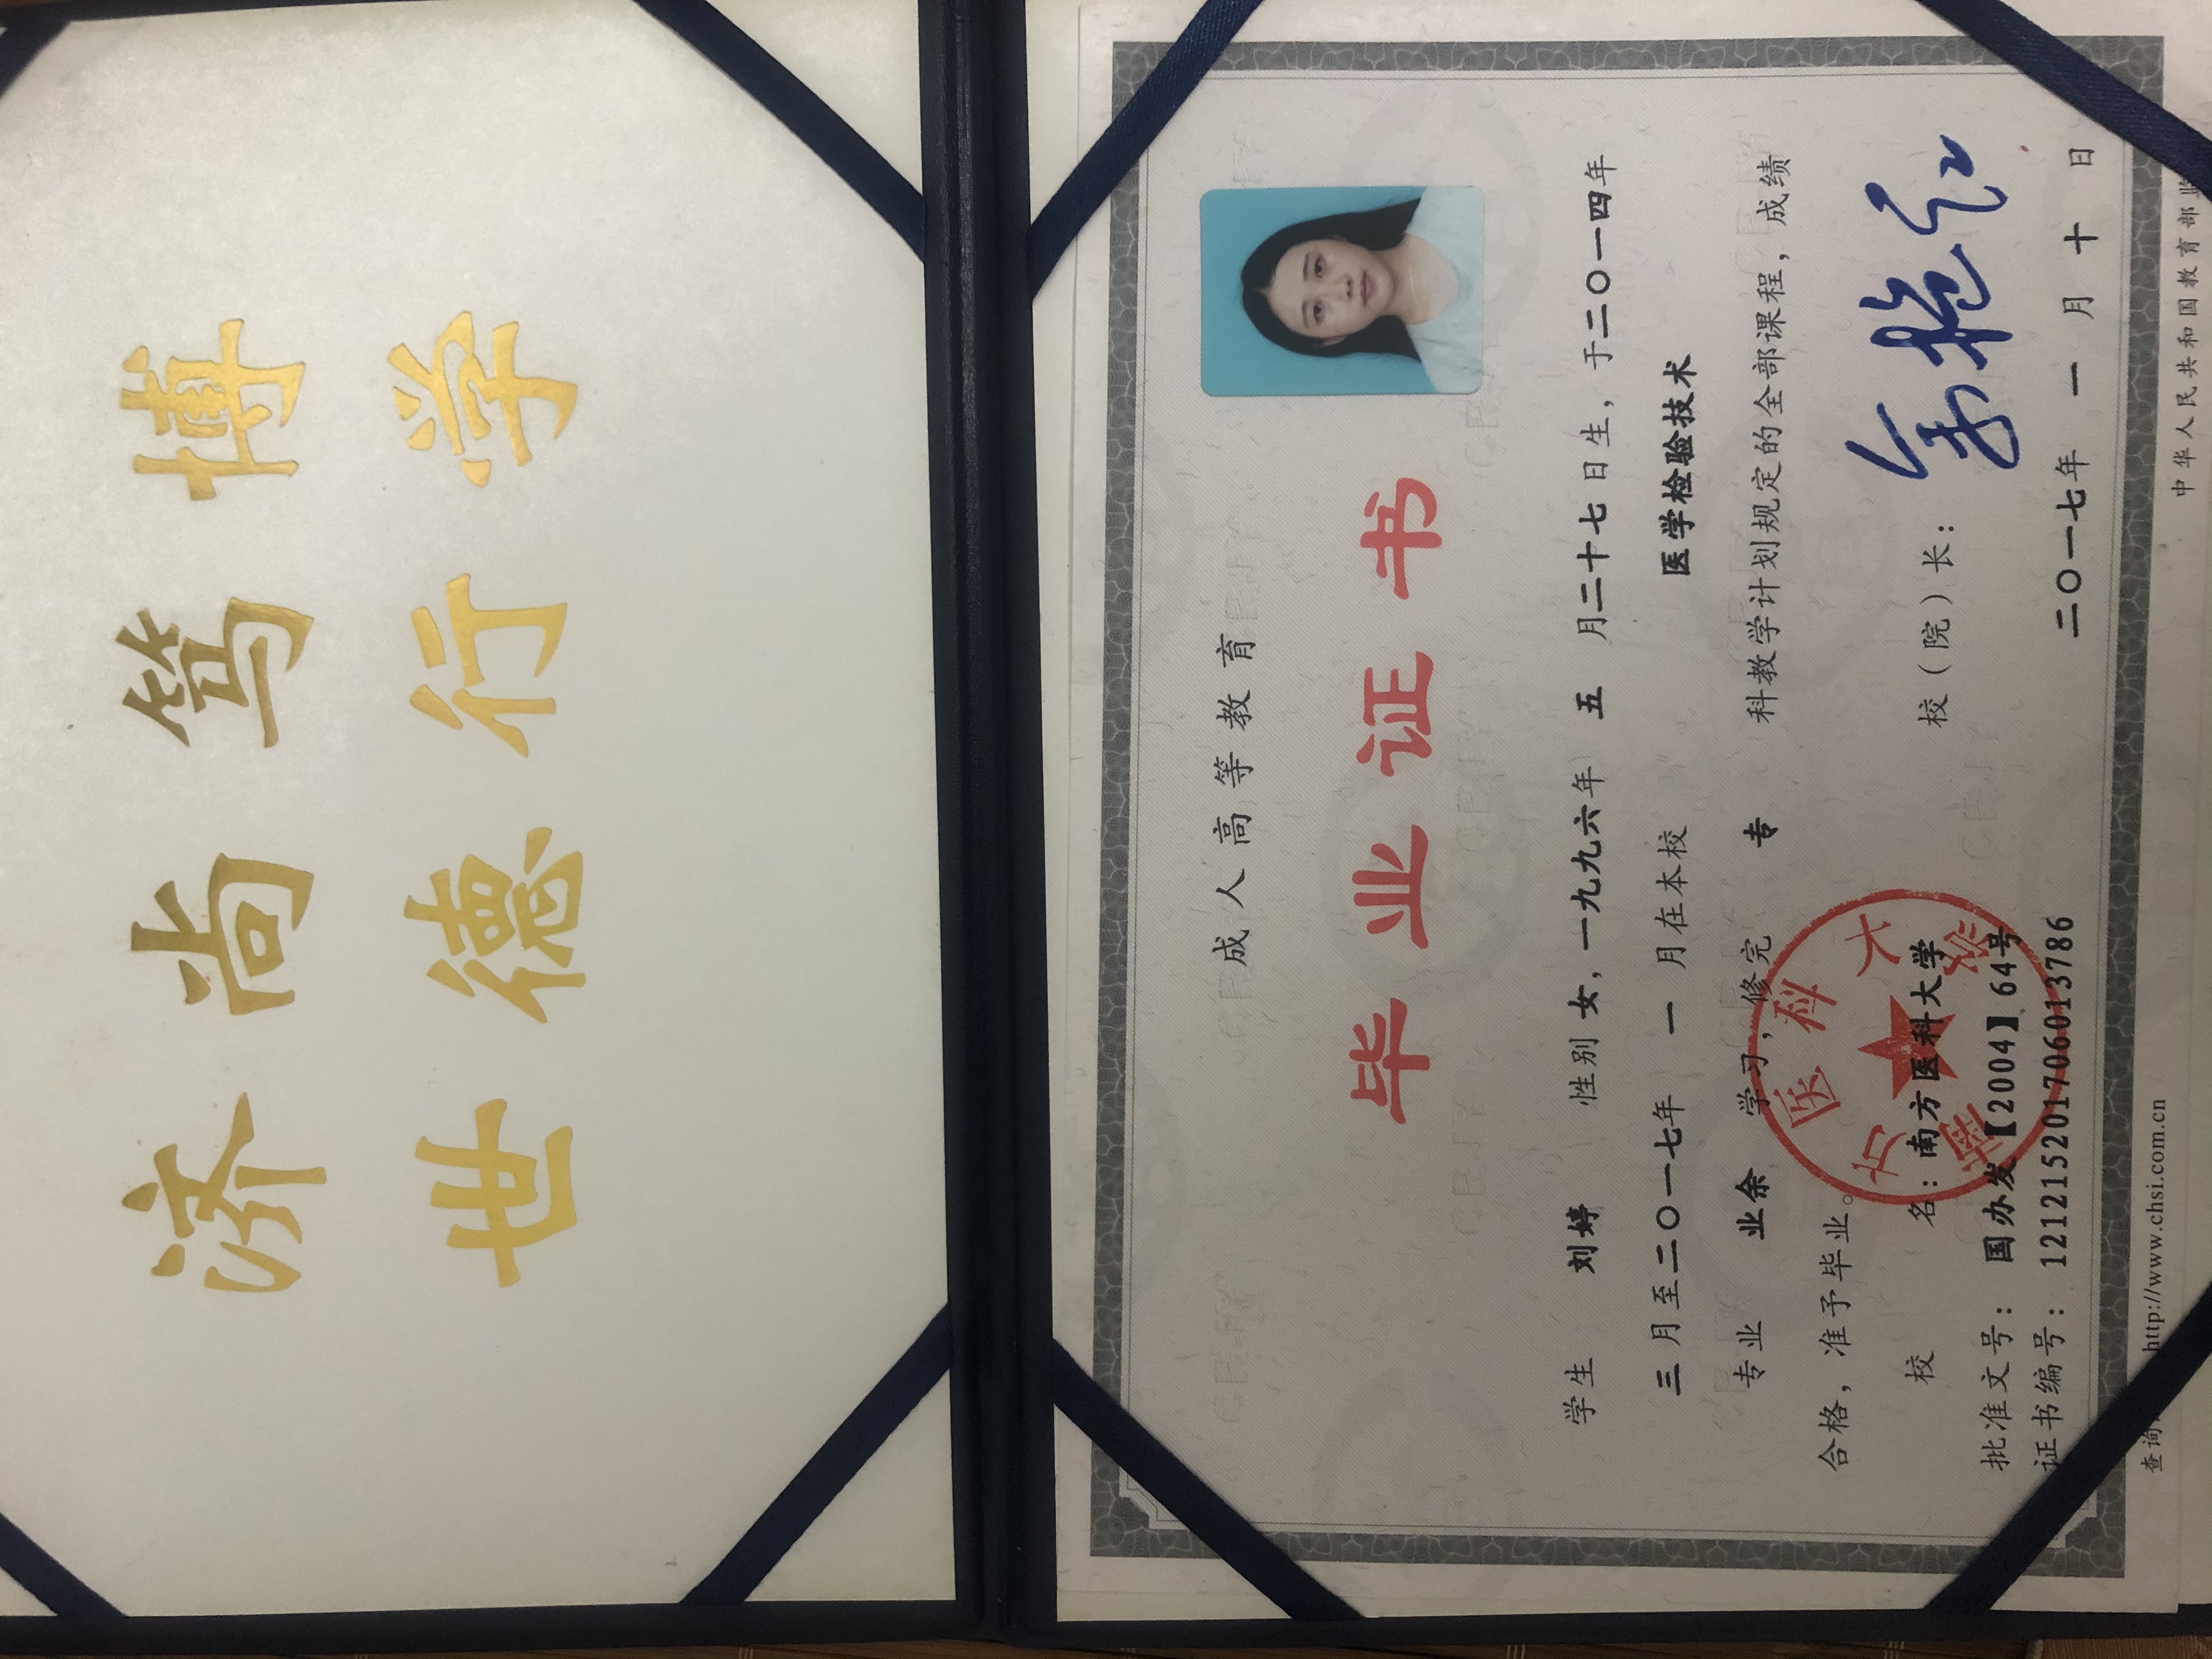 博学
笃行
尚德
济世
成人高等教育
毕业证书
学生 刘婷 性别 女，一九九六年 五 月二十七日生，于二〇一四年
三 月至二〇一七年 一 月在本校 医学检验技术
专业 业余 学习，修完 专 科教学计划规定的全部课程，成绩
合格，准予毕业。
校 名：南方医科大学 校（院）长：
批准文号：国办发【2004】64号
证书编号：121215201706013786
二〇一七年 一 月 十 日
南方医科大学
查询 http://www.chsi.com.cn 中华人民共和国教育部